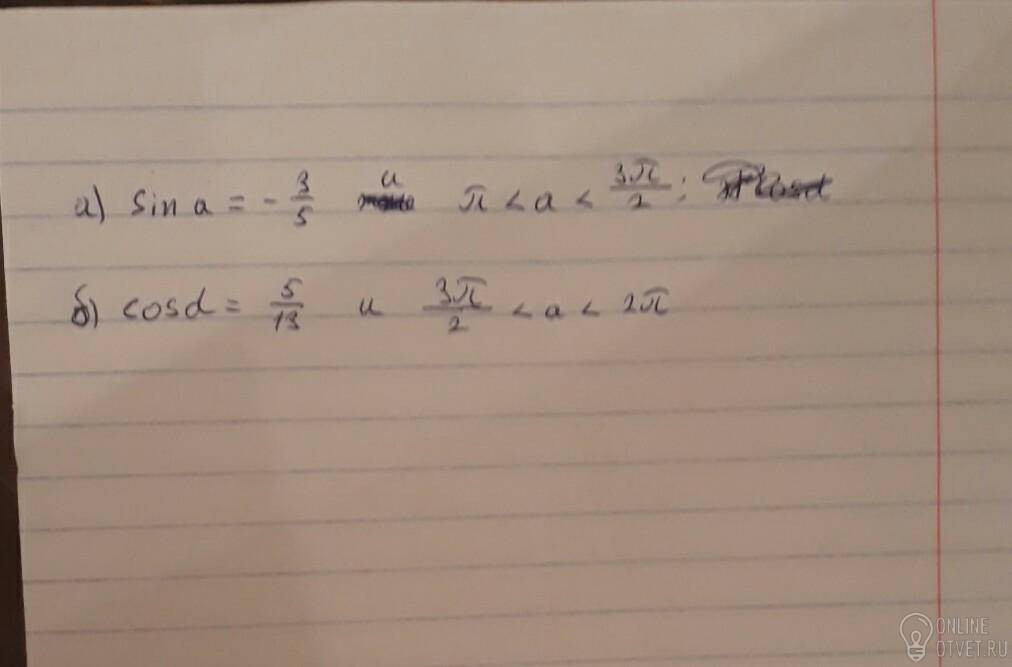 а) sin a = - 3/5 и π < a < 3π/2;
б) cosd = 5/13 и 3π/2 < a < 2π
ONLINE
OTVET.RU